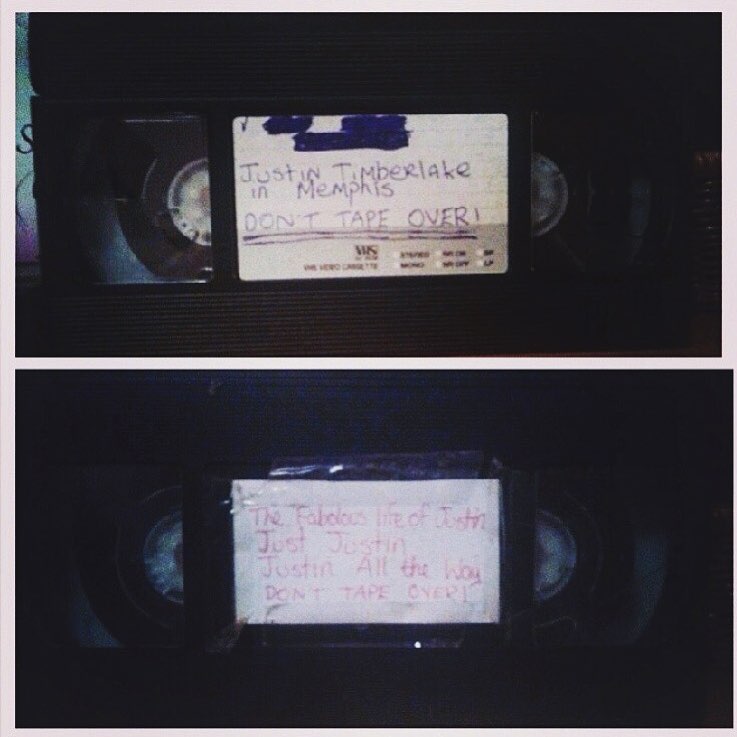 Justin Timberlake
in Memphis
DON'T TAPE OVER!
VHS
VHS VIDEO CASSETTE
STEREO
MONO
The Fabolous life of Justin
Just Justin
Justin All the Way
DON'T TAPE OVER!